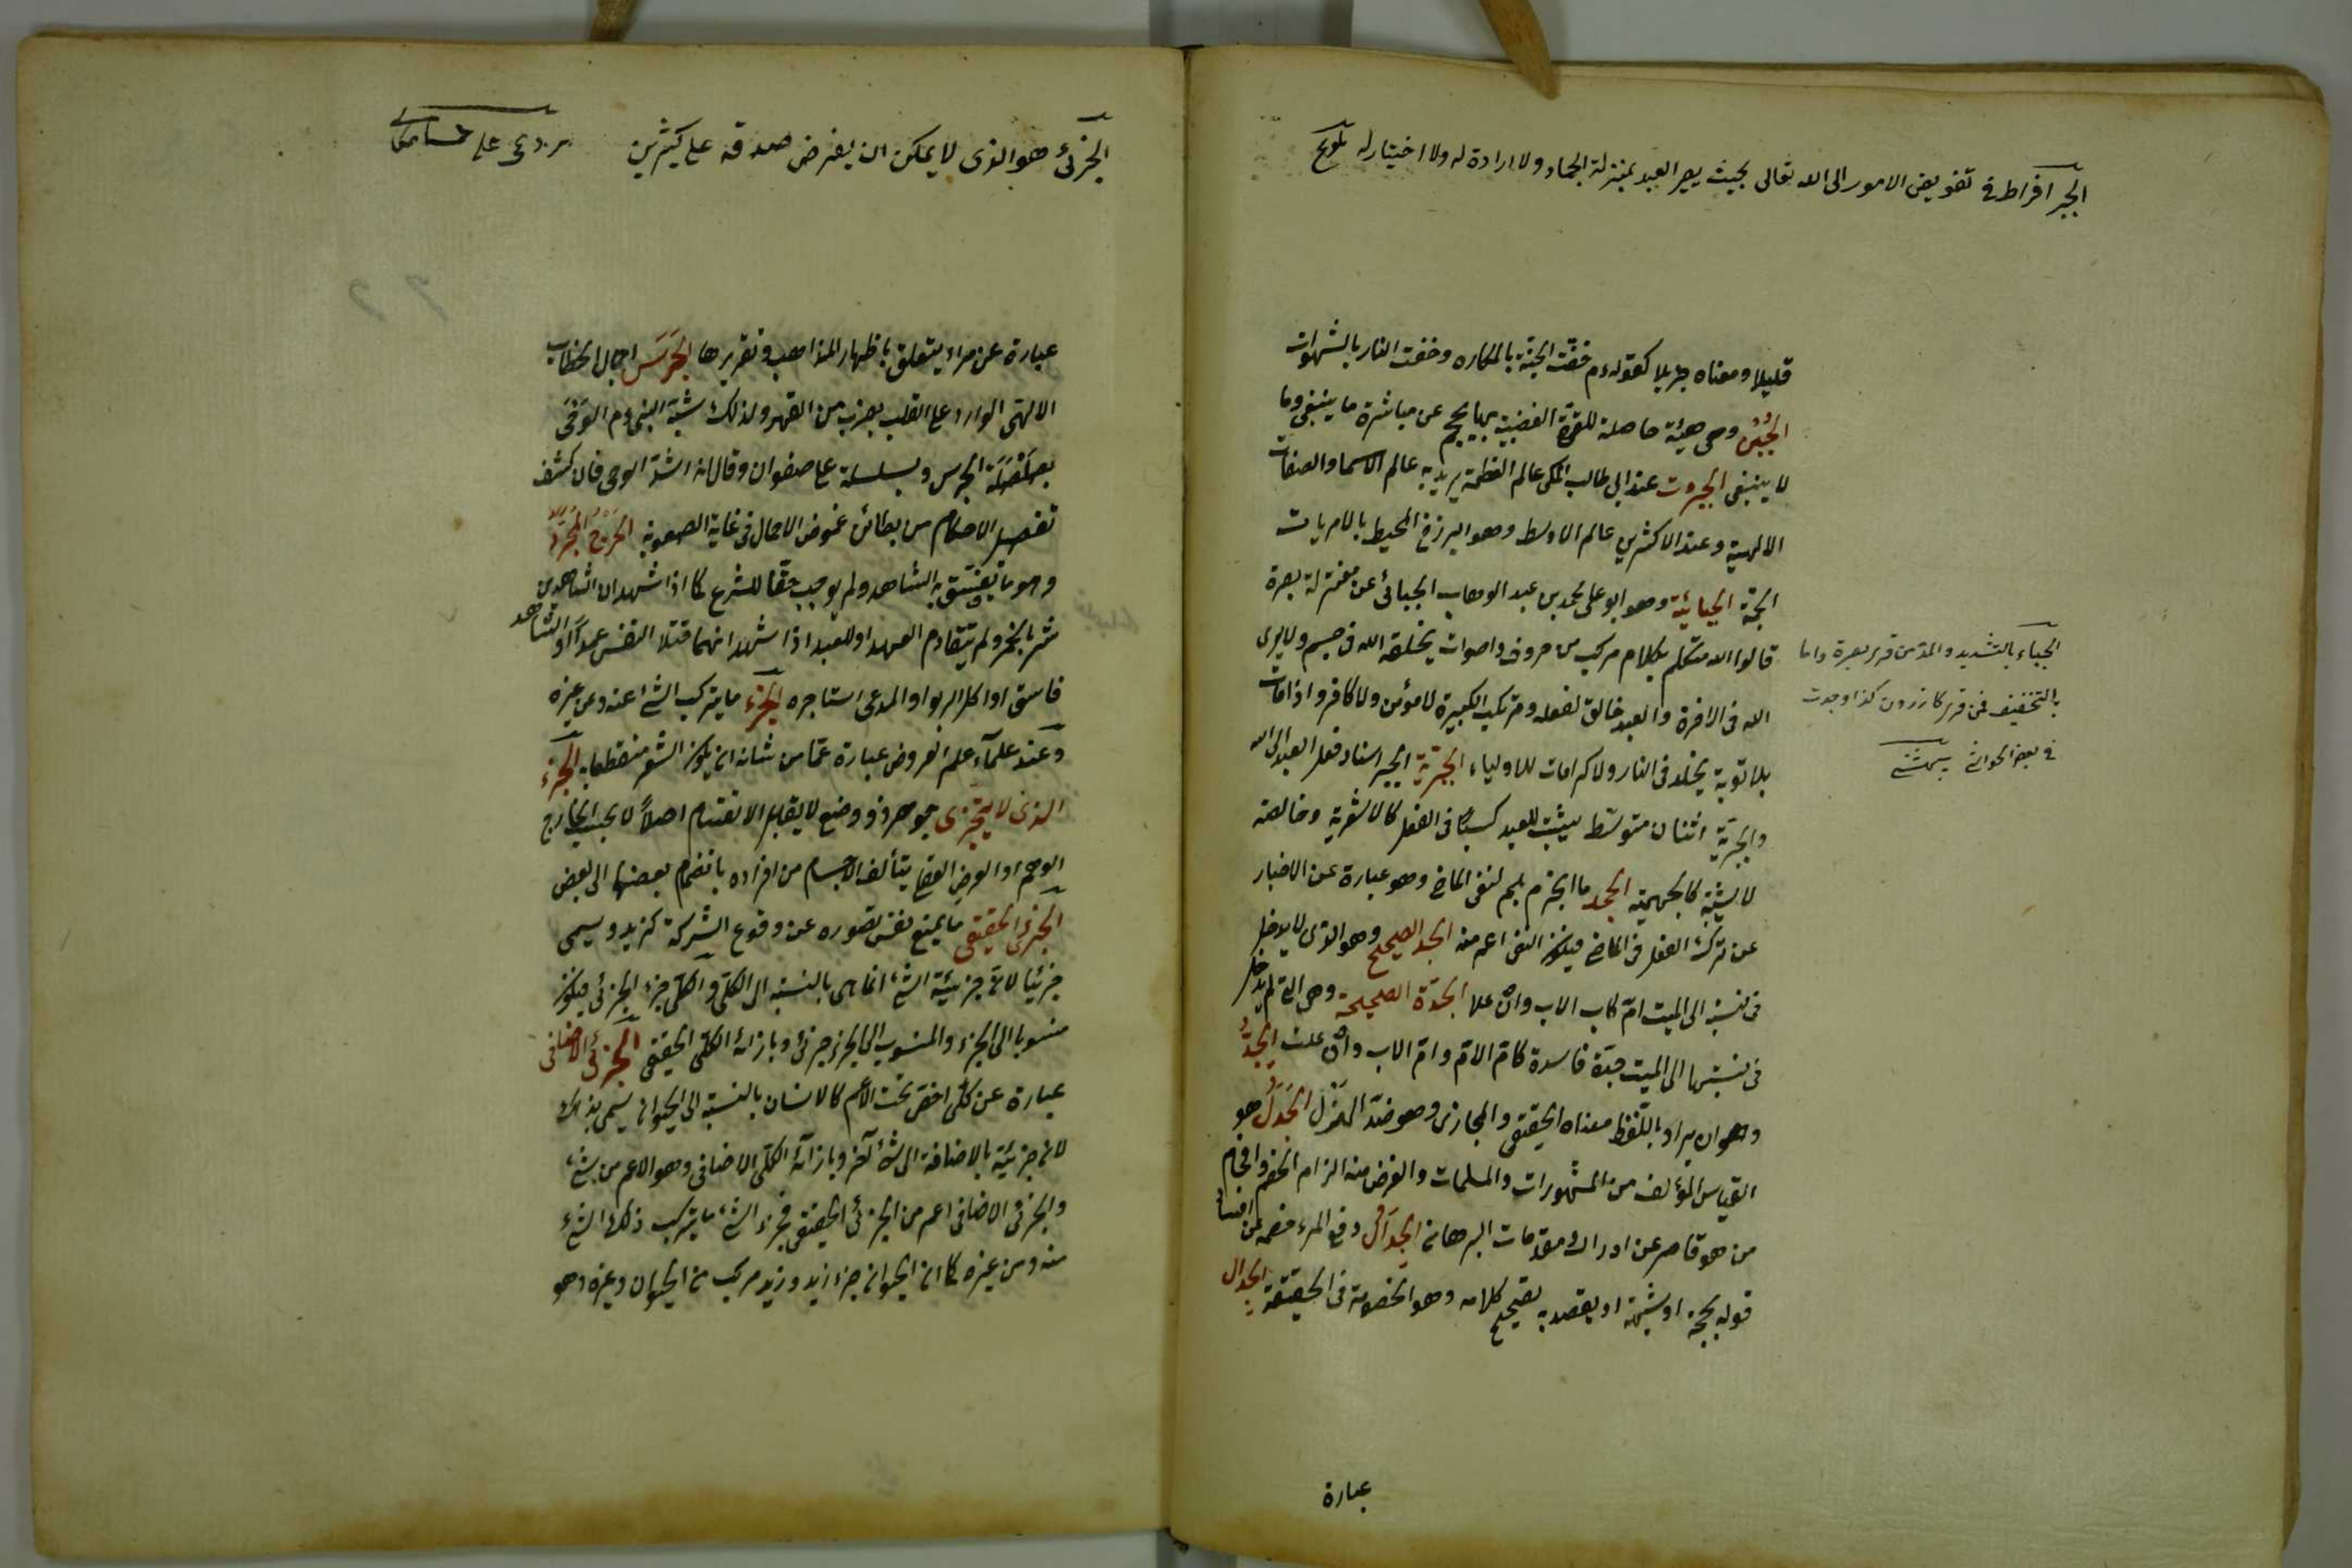 الجبر افراط في تفويض الامور الى الله تعالى بحيث يصير العبد بمنزلة الجماد ولا ارادة له ولا اختيار له تلويح
قليلا ومعناه جزيلا كقوله م حفت الجنة بالمكاره وحفت النار بالشهوات
الجبن وهى هيئة حاصلة للقوة الغضبية بها يحجم عن مباشرة ما ينبغى وما
لا ينبغى الجبروت عند ابي طالب المكى عالم العظمة يريد به عالم الاسما والصفات
الالهية وعند الاكثرين عالم الاوسط وهو البرزخ المحيط بالامريات
الجمة الجبائية وهو ابو على محمد بن عبد الوهاب الجبائى عن معتزلة بصرة
قالوا الله متكلم بكلام مركب من حروف واصوات يخلقه الله فى جسم ولا يرى
الله فى الاخرة والعبد خالق لفعله ومرتكب الكبيرة لا مؤمن ولا كافر واذا مات
بلا توبة يخلد فى النار ولا كرامات للاولياء الجبرية الجبر اسناد فعل العبد الى الله
والجبرية اثنان متوسط يثبت للعبد كسبا فى الفعل كالاشعرية وخالصة
لا يثبت كالجهمية الجحد ما انجزم بلم لنفى الماضى وهو عبارة عن الاخبار
عن ترك الفعل فى الماضى فيكون النفى اعم منه الجد الصحيح وهو الذى لا يدخل
فى نسبته الى الميت ام كاب الاب وان علا الجدة الصحيحة وهى التى لم يدخل
فى نسبتها الى الميت جد فاسد كام الام وام الاب وان علت الجد
وهو ان يراد باللفظ معناه الحقيقى والمجازى وهو ضد الهزل الجدل هو
القياس المؤلف من المشهورات والمسلمات والغرض منه الزام الخصم وافحام
من هو قاصر عن ادراك مقدمات البرهان الجدال دفع المرء خصمه عن افساد
قوله بحجة او شبهة او يقصد به تصحيح كلامه وهو الخصومة فى الحقيقة الجدال
عبارة
الجباء بالتشديد والمد من قرى بصرة واما
بالتخفيف فمن قرى كازرون كذا وجدت
فى بعض الحواشى
الجزئى هو الذى لا يمكن ان يفرض صدقه على كثيرين
عبارة عن مراء يتعلق باظهار المذاهب وتقريرها الجرس اجمال الخطاب
الالهى الوارد على القلب بضرب من القهر ولذلك شبه النبى م الوحى
بصلصلة الجرس وبسلسلة على صفوان وقال انه اشد الوحى فان كشف
تفصيل الاحكام من بطائن غموض الاجمال فى غاية الصعوبة الجرح المجرد
وهو ما يفسق به الشاهد ولم يوجب حقا للشرع كما اذا شهد ان الشاهدين
شربا الخمر ولم يتقادم العهد او للعبد اذا شهد انهما قتلا النفس عمدا او الشاهد
فاسق او اكل الربوا او المدعى استاجره الجزء ما يتركب الشئ عنه وعن غيره
وعند علماء علم العروض عبارة عما من شانه ان يكون الشعر منقطعا به الجزء
الذى لا يتجزى جوهر ذو وضع لا يقبل الانقسام اصلا لا بحسب الخارج
الوهم او الفرض العقلى يتألف الاجسام من افراده بانضمام بعضها الى بعض
الجزئى الحقيقى ما يمنع نفس تصوره عن وقوع الشركة كزيد ويسمى
جزئيا لان جزئية الشئ انما هى بالنسبة الى الكلى والكلى جزء الجزئى فيكون
منسوبا الى الجزء والمنسوب الى الجزء جزئى وبازائه الكلى الحقيقى الجزئى الاضافى
عبارة عن كلى اخص تحت الاعم كالانسان بالنسبة الى الحيوان يسمى بذلك
لان جزئيته بالاضافة الى شئ آخر وبازائه الكلى الاضافى وهو الاعم من شئ
والجزئى الاضافى اعم من الجزئى الحقيقى فجزء الشئ ما يتركب ذلك الشئ
منه ومن غيره كما ان الحيوان جزء زيد وزيد مركب من الحيوان وغيره وهو